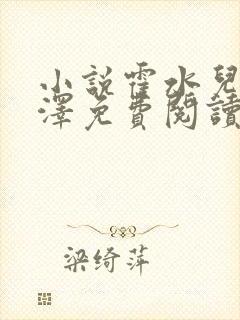 小說霍水兒
澤免費閱讀
梁绮萍